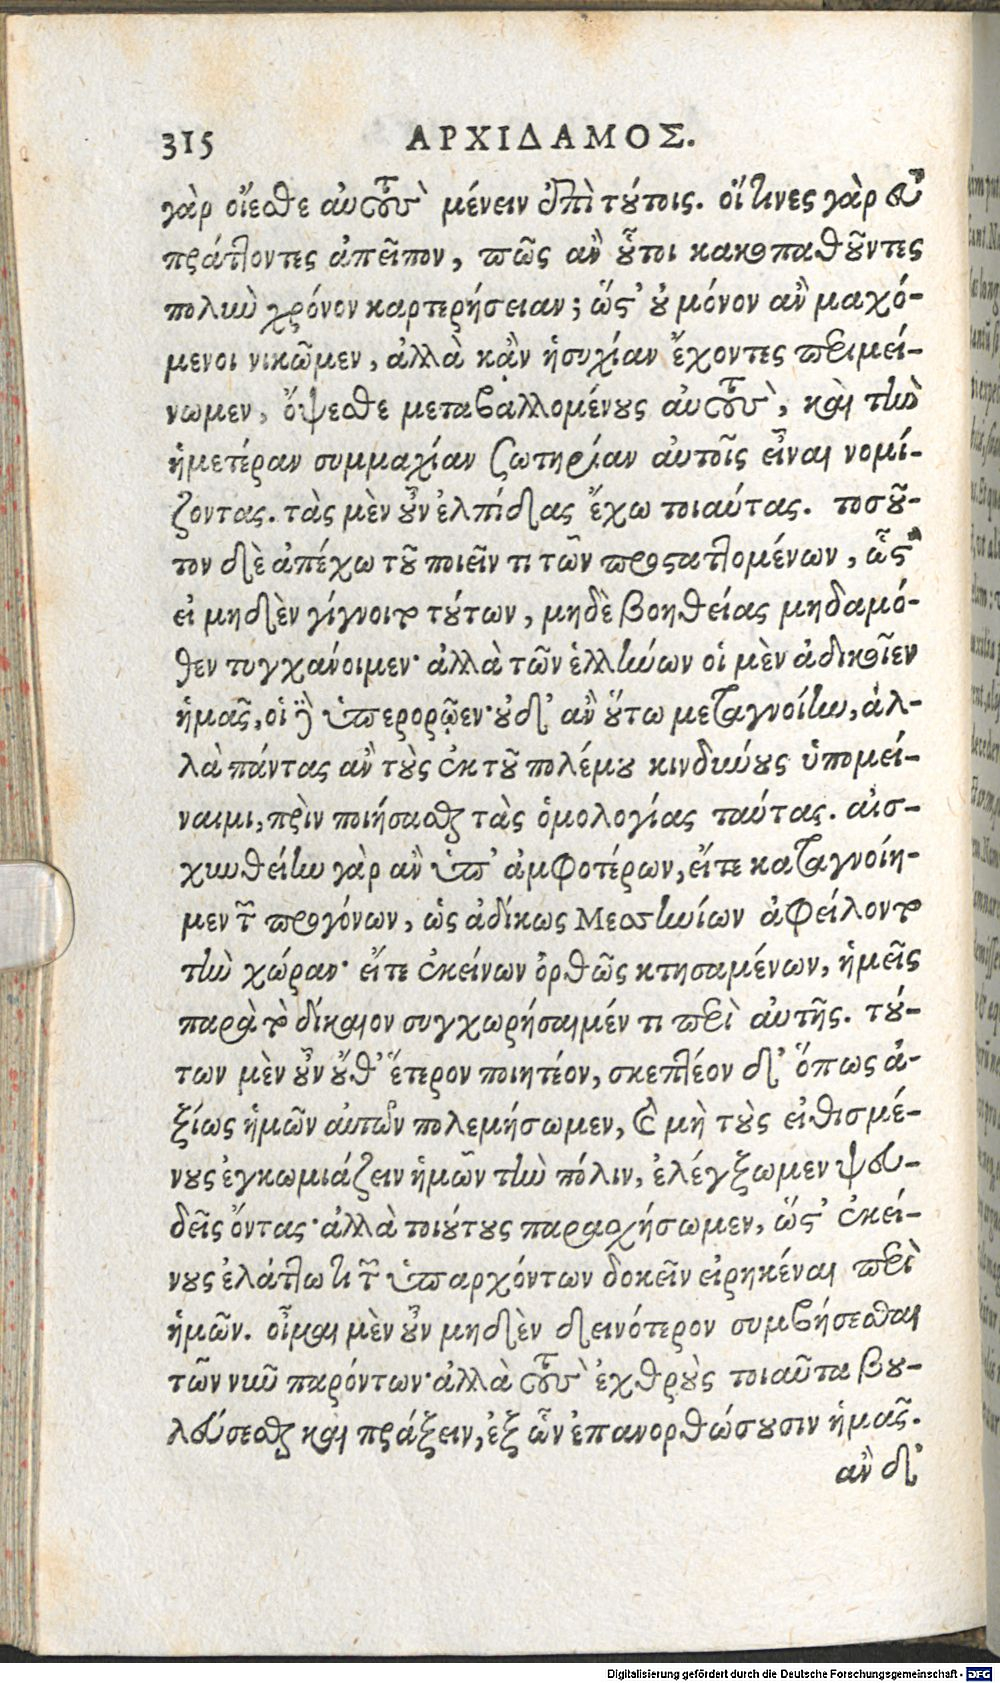 315 ΑΡΧΙΔΑΜΟΣ.
γὰρ οἴεσθε αὐτοὺς μένειν ἐπὶ τούτοις. οἵτινες γὰρ εὖ
πράττοντες ἀπεῖπον, πῶς ἂν οὗτοι κακοπαθοῦντες
πολὺν χρόνον καρτερήσειαν; ὥστ' οὐ μόνον ἂν μαχό-
μενοι νικῶμεν, ἀλλὰ κᾂν ἡσυχίαν ἔχοντες περιμεί-
νωμεν, ὄψεσθε μεταβαλλομένους αὐτοὺς, καὶ τὴν
ἡμετέραν συμμαχίαν σωτηρίαν αὑτοῖς εἶναι νομί-
ζοντας. τὰς μὲν οὖν ἐλπίδας ἔχω τοιαύτας. τοσοῦ-
τον δὲ ἀπέχω τοῦ ποιεῖν τι τῶν προσταττομένων, ὥστ'
εἰ μηδὲν γίγνοιτο τούτων, μηδὲ βοηθείας μηδαμό-
θεν τυγχάνοιμεν· ἀλλὰ τῶν ἑλλήνων οἱ μὲν ἀδικοῖεν
ἡμᾶς, οἱ δὲ ὑπερορῷεν· οὐδ' ἂν οὕτω μεταγνοίην, ἀλ-
λὰ πάντας ἂν τοὺς ἐκ τοῦ πολέμου κινδύνους ὑπομεί-
ναιμι, πρὶν ποιήσασθαι τὰς ὁμολογίας ταύτας. αἰσ-
χυνθείην γὰρ ἂν ὑπ' ἀμφοτέρων, εἴτε καταγνοίη-
μεν τῶν προγόνων, ὡς ἀδίκως Μεσσηνίων ἀφείλοντο
τὴν χώραν· εἴτε ἐκείνων ὀρθῶς κτησαμένων, ἡμεῖς
παρὰ τὸ δίκαιον συγχωρήσαιμέν τι περὶ αὐτῆς. τού-
των μὲν οὖν οὔθ' ἕτερον ποιητέον, σκεπτέον δ' ὅπως ἀ-
ξίως ἡμῶν αὐτῶν πολεμήσωμεν, καὶ μὴ τοὺς εἰθισμέ-
νους ἐγκωμιάζειν ἡμῶν τὴν πόλιν, ἐλέγξωμεν ψευ-
δεῖς ὄντας· ἀλλὰ τοιούτους παρασχήσωμεν, ὥστ' ἐκεί-
νους ἐλάττω τι τῶν ὑπαρχόντων δοκεῖν εἰρηκέναι περὶ
ἡμῶν. οἶμαι μὲν οὖν μηδὲν δεινότερον συμβήσεσθαι
τῶν νῦν παρόντων· ἀλλὰ τοὺς ἐχθροὺς τοιαῦτα βου-
λεύσεσθαι καὶ πράξειν, ἐξ ὧν ἐπανορθώσουσιν ἡμᾶς.
ἂν δ'
Digitalisierung gefördert durch die Deutsche Forschungsgemeinschaft - DFG